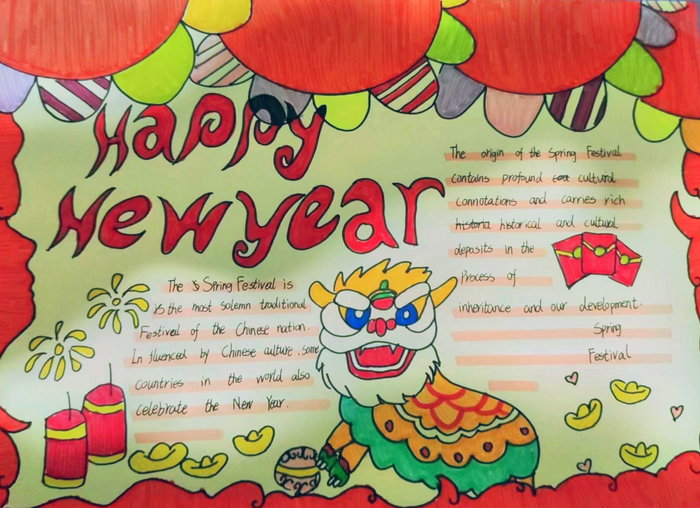 Happy
New year
The origin of the Spring Festival
contains profound cultural
connotations and carries rich
historia historical and cultural
deposits in the
Process of
inheritance and our development.
Spring
Festival
The 's Spring Festival is
is the most solemn traditional
Festival of the Chinese nation.
In fluenced by Chinese culture, some
countries in the world also
celebrate the New Year.